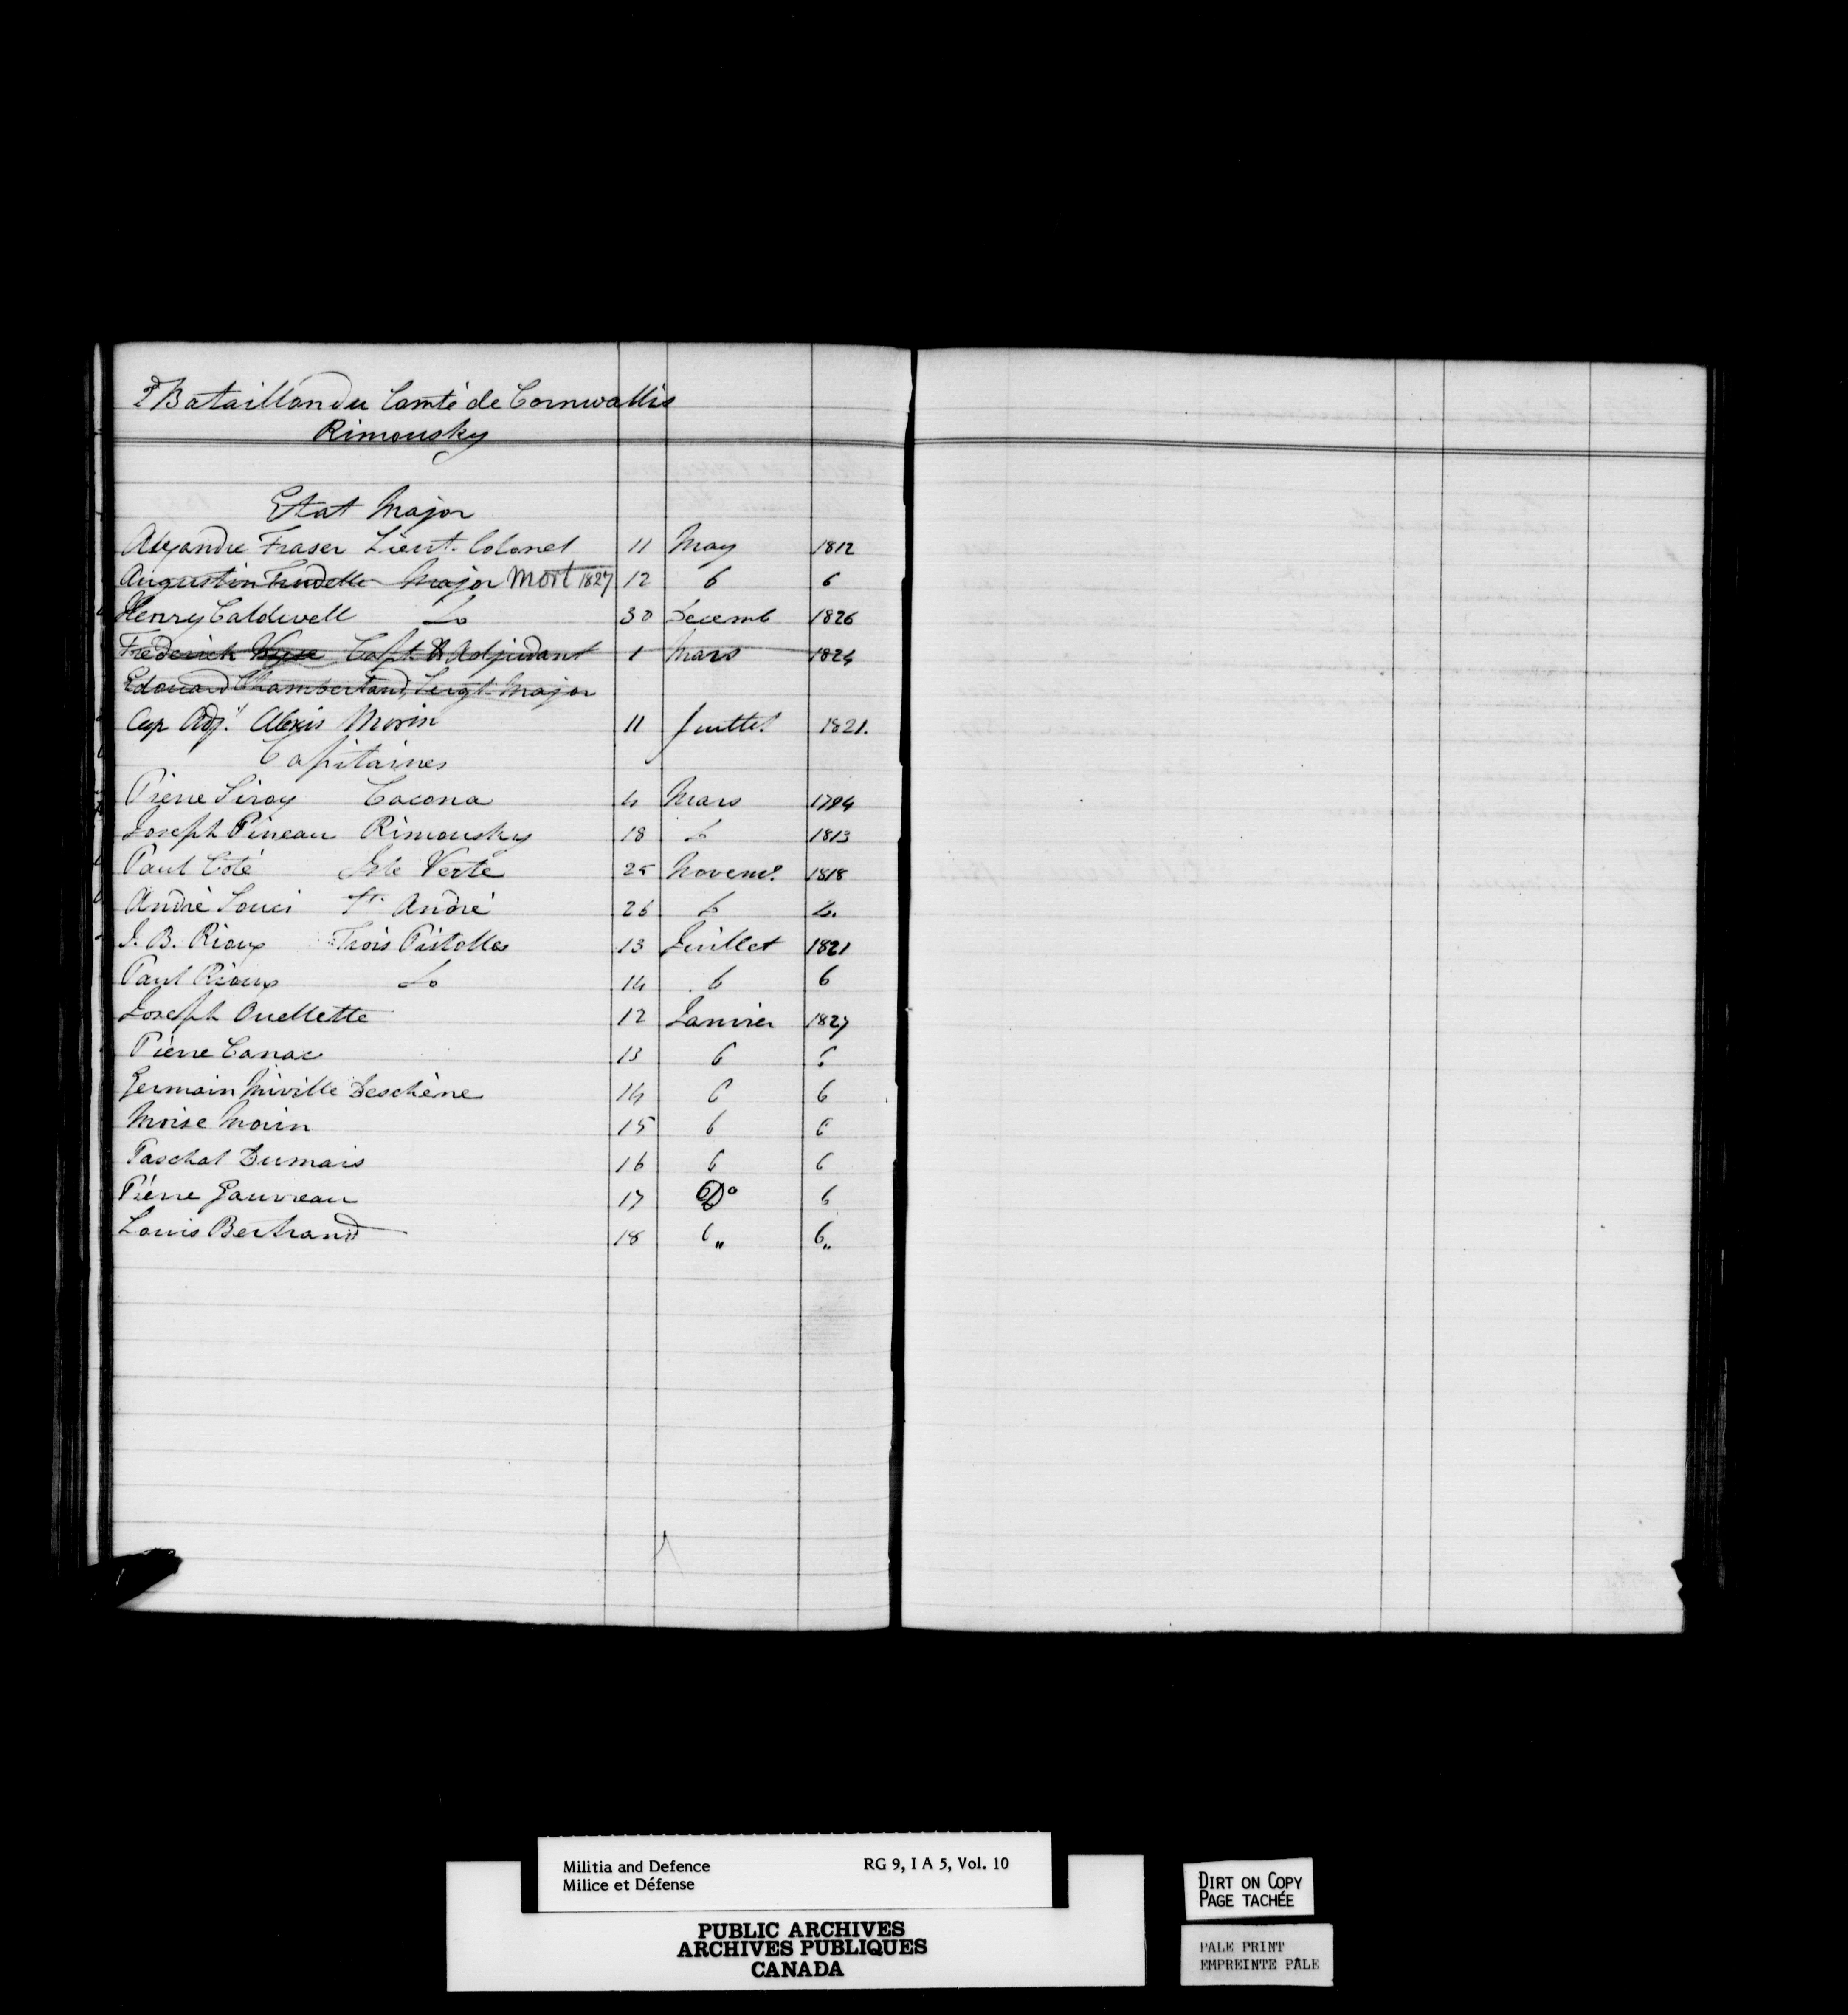 2d Bataillon du Comté de Cornwallis
Rimousky
Etat Major
Alexandre Fraser Lieut. Colonel 11 May 1812
Augustin Trudelle Major Mort 1827 12 6 6
Henry Caldwell Do 30 Decemb 1826
Frederick Capt & Adjudant 1 Mars 1824
Edouard Chamberland, Sergt Major
Cap Adjt Alexis Morin 11 Juillet 1821.
Capitaines
Pierre Siroy Cacona 4 Mars 1794
Joseph Pineau Rimousky 18 Do 1813
Paul Coté Isle Verte 25 Novemr. 1818
André Souci St. André 26 Do Do.
J. B. Rioux Trois Pistolles 13 Juillet 1821
Paul Rioux Do 14 6 6
Joseph Ouellette 12 Janvier 1827
Piérre Canac 13 6 6
Germain Miville Deschène 14 6 6
Moise Morin 15 6 6
Paschal Dumais 16 6 6
Piérre Gauvreau 17 Do 6
Louis Bertrand 18 6 „ 6 „
Militia and Defence RG 9, I A 5, Vol. 10
Milice et Défense
PUBLIC ARCHIVES
ARCHIVES PUBLIQUES
CANADA
DIRT ON COPY
PAGE TACHÉE
PALE PRINT
EMPREINTE PÂLE